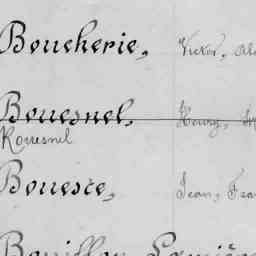 Boucherie, Victor,
Bouesnel, Henry,
Rouesnel
Boueste, Jean,
Bouillon